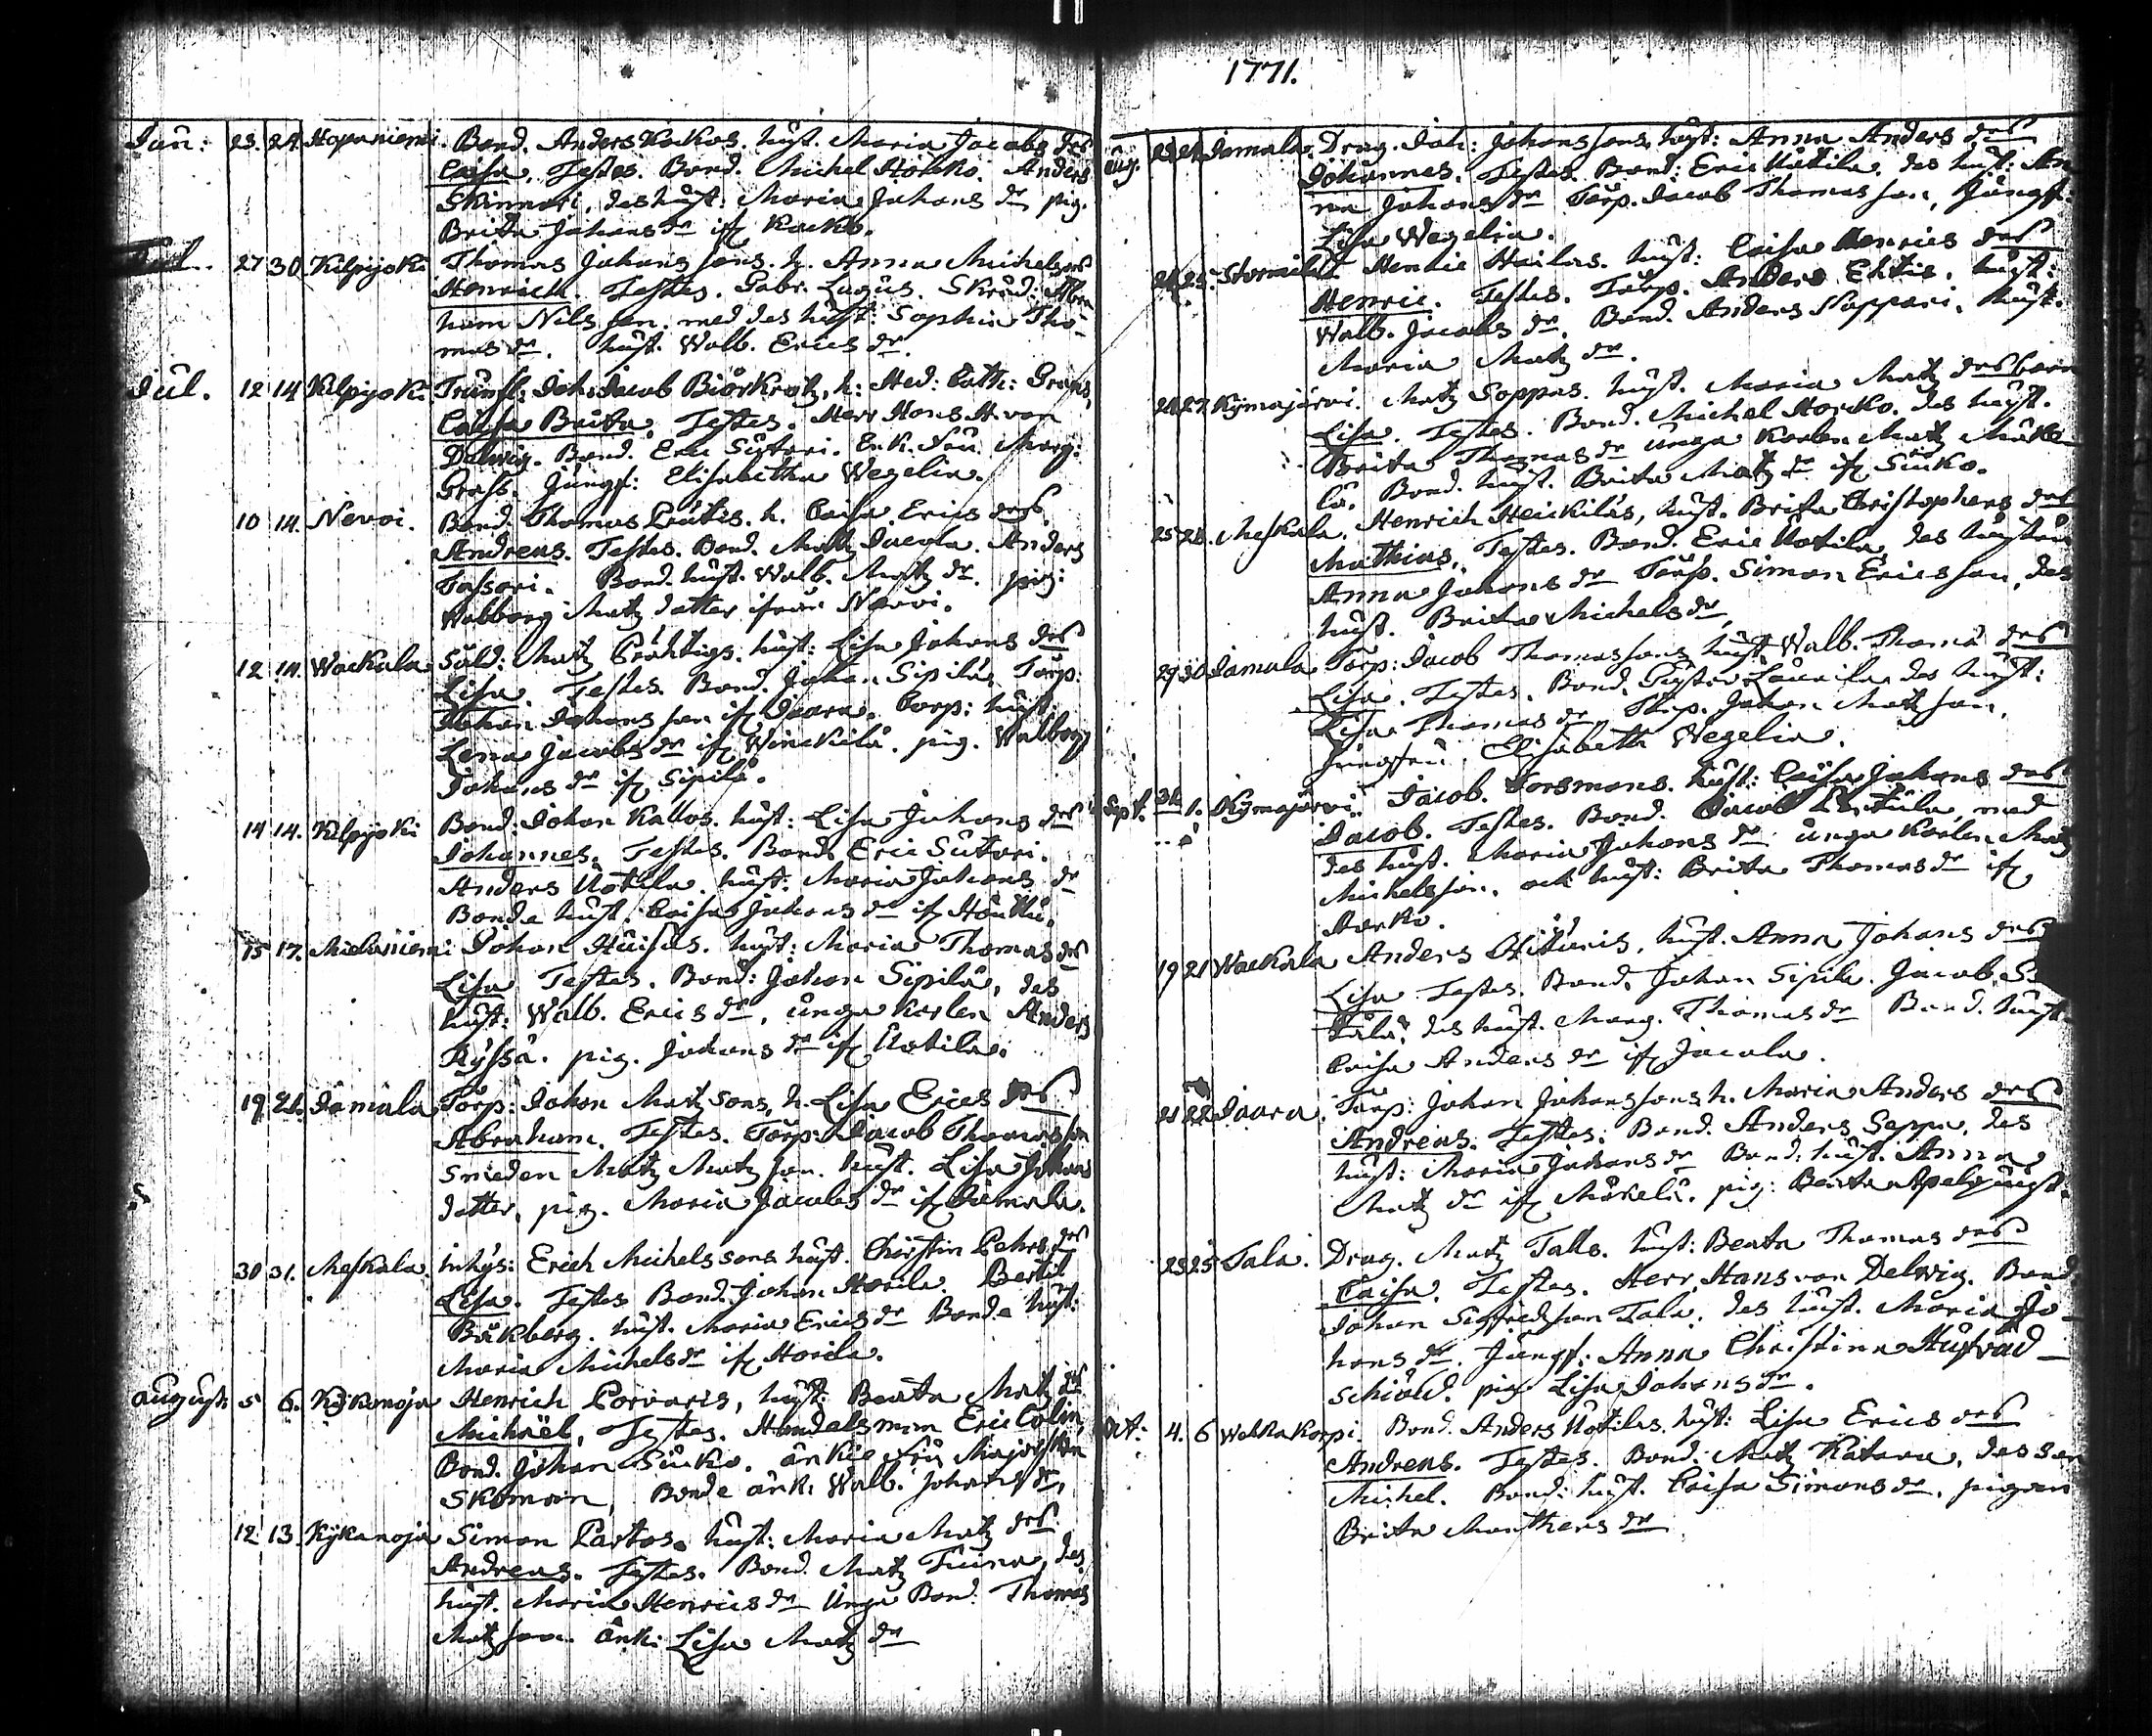 1771.
Jan: 23. 24. Haponiemi. Bond. Anders Kackos. hust. Maria Jacobs drs
Caisa. Testes. Bond. Michel Horko. Anders
Skinnari, des hust: Maria Johans dr pig.
Brita Johans dr if Kacko.
27 30 Kilpijoki Thomas Johans sons. h. Anna Michels drs
Henrich. Testes. Gabr. Lagus. Skräd: Abra
ham Nils son. med des hust: Sophia Tho-
mas dr. hust. Walb. Erics dr.
Jul. 12 14 Kilpijoki Joh: Jacob Biörkrotz, h: Hed: Cath:
Caisa Brita. Testes. Herr Hans H. von
Delwig. Bond. Eric Sutari. Enk. Fru Marg:
Jungf: Elisabetha Wegelia.
10 14. Nervoi. Bond. Thomas h. Caisa Erics drs.
Andreas. Testes. Bond. Matz Jacola. Anders
Tassari. Bond. hust. Walb. Matz dr. pig:
Walborg Matz dotter ifrån Nervoi.
12 14. Wackala Sold: Matz Prähtigs. hust: Lisa Johans drs
Lisa. Testes. Bond. Johan Sipilä. Torp:
Johan Johans son if Jaara. Corp: hust:
Lena Jacobs dr if pig. Walborg
Johans dr if Sipilä.
14 14. Kilpijoki Bond: Johan Kallos. hust: Lisa Johans drs
Johannes. Testes. Bond. Eric Sutari.
Anders Uotila. hust: Maria Johans dr
Bonde hust. Caisa Johans dr if
15 17. Johan hust: Maria Thomas drs
Lisa Testes. Bond: Johan Sipilä, des
hust: Walb. Erics dr, unga karlen Anders
Ryssä. pig. Johans dr if Uotila.
19 21. Jamala Torp: Johan Matz sons, h. Lisa Erics drs
Abraham. Testes. Torp: Jacob Thomas son
smeden Matz Matz son. hust. Lisa Johans
dotter, pig. Maria Jacobs dr if Jamala.
30 31. Meskala. Inhys: Erich Michels sons hust. Christin Pehrs drs
Lisa. Testes Bond. Johan Horila. Bertil
Bäkberg. hust. Maria Erics dr Bonde hust:
Maria Michels dr if Horila.
August: 5 6. Kykänoja Henrich Porvaris, hust: Beata Matz drs
Michaël. Testes. Handelsman Eric Colin,
Bond. Johan Siuko. änkie Fru Majorskan
Skoman, Bonde änk: Walb. Johans dr,
12 13. Kykänoja Simon Partos. hust: Maria Matz drs
Andreas. Testes. Bond. Matz Tuina, des
hust. Maria Henrics dr Unga Bond. Thomas
Matz son. änk: Lisa Matz dr
Aug. 23 24 Jamala. Drag. Joh: Johans sons, hust: Anna Anders drs
Johannes. Testes. Bond: Eric Uotila. des hust: An
na Johans dr Torp. Jacob Thomas son, Jungf:
Lisa Wegelia.
24 25. Henric Hailas. hust: Caisa Henrics drs
Henric. Testes. Torp. Anders Ehtis. hust:
Walb. Jacobs dr. Bond. Anders Nappari. hust.
Maria Matz dr.
24 27. Kÿmajärvi. Matz Soppas. hust. Maria Matz drs barn
Lisa. Testes. Bond. Michel Horko. des hust.
Brita Thomas dr unga karlen Matz Mäke
lä. Bond. hust. Brita Matz dr if Siuko.
25 28. Meskala. Henrich Heickiläs, hust. Brita Christophers drs
Mathias. Testes. Bond. Eric Uotila, des hustru
Anna Johans dr Torp. Simon Erics son, des
hust. Brita Michels dr,
29 30 Jamala Torp: Jacob Thomas sons hust Walb. Thoma drs
Lisa. Testes. Bond. Laurila des hust:
Lisa Thomas dr Torp. Johan Matz son,
Jungfru Elisabeth Wegelia.
Sept. 31 1. Kÿmajärvi. Jacob. Forsmans. hust: Caisa Johans drs
Jacob. Testes. Bond. Jacob med
des hust. Maria Johans dr unga karlen Matz
Michels son. och hust: Brita Thomas dr if
Horko.
19 21 Wackala Anders hust. Anna Johans drs
Lisa Testes. Bond. Johan Sipilä. Jacob
des hust. Marg. Thomas dr Bond. hust
Caisa Anders dr if Jacola.
21 22 Jaara. Torp: Johan Johans sons h. Maria Anders drs
Andreas. Testes: Bond. Anders Seppa, des
hust: Maria Johans dr Bond: hust. Anna
Matz dr if Mäkelä. pig: Beata
23 25 Tala. Drag. Matz Talls. hust: Beata Thomas drs
Caisa. Testes. Herr Hans von Delwig. Bond:
Johan Sigfreds son Tala. des hust. Maria Jo-
hans dr. Jungf: Anna Christina
schiöld. pig Lisa Johans dr.
Oct: 4. 6 Wahkakorpi. Bond. Anders Uotilas. hust: Lisa Erics drs
Andreas. Testes. Bond: Matz Katara, des son
Michel. Bond: hust. Caisa Simons dr, pigan
Brita Manthens dr